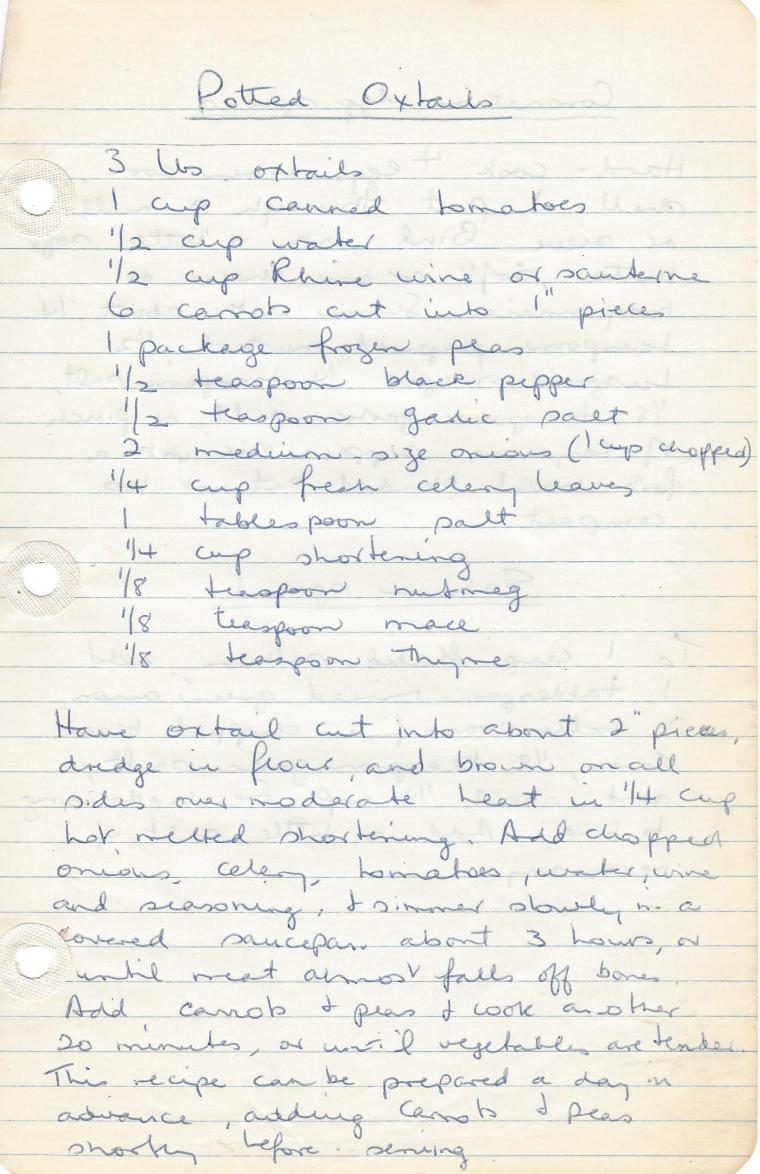 Potted Oxtails
3 lbs oxtails
1 cup canned tomatoes
1/2 cup water
1/2 cup Rhine wine or sauterne
6 carrots cut into 1" pieces
1 package frozen peas
1/2 teaspoon black pepper
1/2 teaspoon garlic salt
2 medium size onions (1 cup chopped)
1/4 cup fresh celery leaves
1 tablespoon salt
1/4 cup shortening
1/8 teaspoon nutmeg
1/8 teaspoon mace
1/8 teaspoon Thyme
Have oxtail cut into about 2" pieces,
dredge in flour, and brown on all
sides over moderate heat in 1/4 cup
hot melted shortening. Add chopped
onions, celery, tomatoes, water, wine
and seasoning, & simmer slowly in a
covered saucepan about 3 hours, or
until meat almost falls off bones.
Add carrots & peas & cook another
20 minutes, or until vegetables are tender.
This recipe can be prepared a day in
advance, adding carrots & peas
shortly before serving